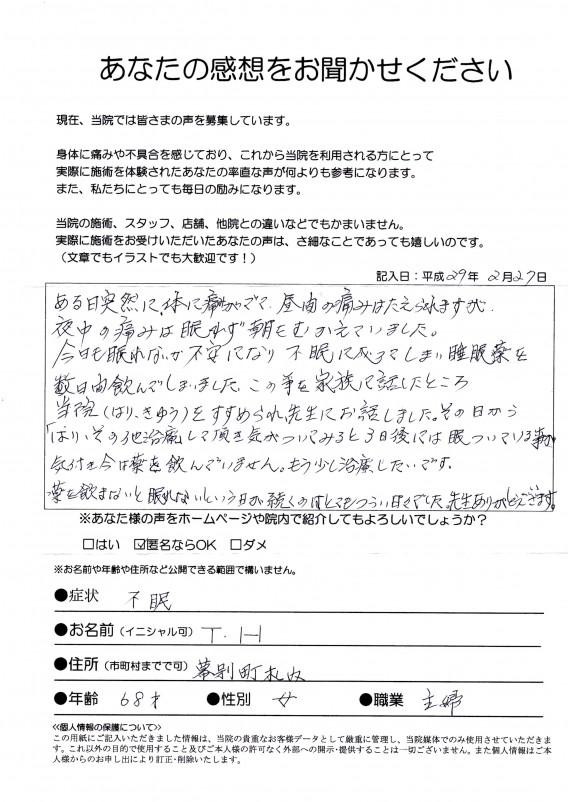 あなたの感想をお聞かせください
現在、当院では皆さまの声を募集しています。
身体に痛みや不具合を感じており、これから当院を利用される方にとって
実際に施術を体験されたあなたの率直な声が何よりも参考になります。
また、私たちにとっても毎日の励みになります。
当院の施術、スタッフ、店舗、他院との違いなどでもかまいません。
実際に施術をお受けいただいたあなたの声は、ささいなことであっても嬉しいのです。
(文章でもイラストでも大歓迎です!)
記入日:平成29年 2月27日
ある日突然に、体に痛がでて、昼間の痛みはたえられますが、
夜中の痛みは眠れず朝をむかえていました。
今日も眠れないか不安になり不眠になってしまい睡眠薬を
数日間飲んでしまいました。この事を家族に話したところ
当院(はり、きゅう)をすすめられ、先生にお話しました。その日から
はり、その他治療して頂き気がついてみると3日後には眠っている事が
気付き今は薬を飲んでいません。もう少し治療したいです。
薬を飲まないと眠れないという日が続くのはとてもつらい日々でした。先生ありがとうございます。
※あなた様の声をホームページや院内で紹介してもよろしいでしょうか?
□はい ☑匿名ならOK □ダメ
※お名前や年齢や住所など公開できる範囲で構いません。
●症状 不眠
●お名前(イニシャル可) T.H
●住所(市町村までで可) 幕別町札内
●年齢 68才 ●性別 女 ●職業 主婦
<<個人情報の保護について>>
この用紙にご記入いただきました情報は、当院の貴重なお客様データとして厳重に管理し、当院媒体でのみ使用させていただきま
す。これ以外の目的で使用すること及びご本人様の許可なく外部への開示・提供することは一切ございません。また個人情報はご本
人様からのお申し出により訂正・削除いたします。